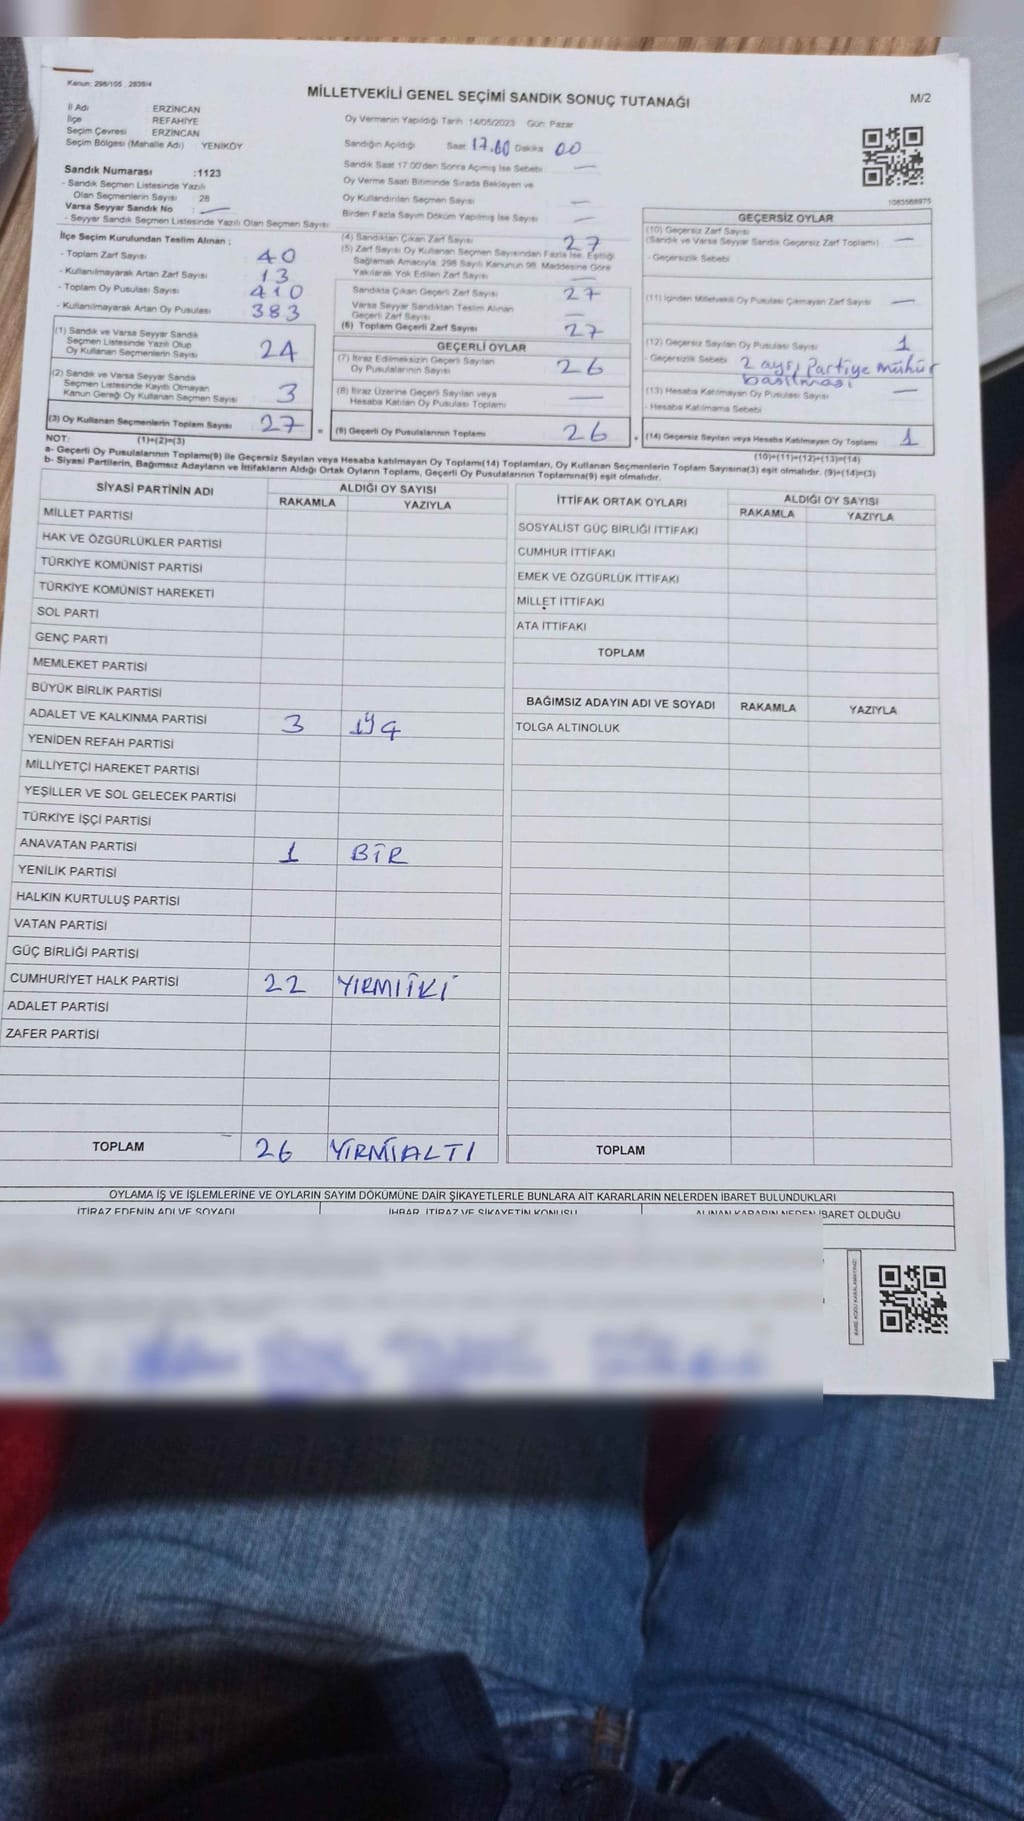 Kanun: 298/105 2839/4
MİLLETVEKİLİ GENEL SEÇİMİ SANDIK SONUÇ TUTANAĞI
M/2
İl Adı ERZİNCAN
İlçe REFAHİYE
Seçim Çevresi ERZİNCAN
Seçim Bölgesi (Mahalle Adı) YENİKÖY
Oy Vermenin Yapıldığı Tarih :14/05/2023 Gün: Pazar
Sandığın Açıldığı Saat 17.00 Dakika 00
Sandık Saat 17:00'den Sonra Açımış İse Sebebi —
Oy Verme Saati Bitiminde Sırada Bekleyen ve
Oy Kullandırılan Seçmen Sayısı —
Birden Fazla Sayım Döküm Yapılmış İse Sayısı —
1083568975
Sandık Numarası :1123
- Sandık Seçmen Listesinde Yazılı
Olan Seçmenlerin Sayısı 28
Varsa Seyyar Sandık No —
- Seyyar Sandık Seçmen Listesinde Yazılı Olan Seçmen Sayısı
İlçe Seçim Kurulundan Teslim Alınan ;
- Toplam Zarf Sayısı 40
- Kullanılmayarak Artan Zarf Sayısı 13
- Toplam Oy Pusulası Sayısı 410
- Kullanılmayarak Artan Oy Pusulası 383
(1) Sandık ve Varsa Seyyar Sandık
Seçmen Listesinde Yazılı Olup
Oy Kullanan Seçmenlerin Sayısı 24
(2) Sandık ve Varsa Seyyar Sandık
Seçmen Listesinde Kayıtlı Olmayan
Kanun Gereği Oy Kullanan Seçmen Sayısı 3
(3) Oy Kullanan Seçmenlerin Toplam Sayısı 27 =
(4) Sandıktan Çıkan Zarf Sayısı 27
(5) Zarf Sayısı Oy Kullanan Seçmen Sayısından Fazla İse, Eşitliği
Sağlamak Amacıyla, 298 Sayılı Kanunun 98. Maddesine Göre
Yakılarak Yok Edilen Zarf Sayısı —
Sandıkta Çıkan Geçerli Zarf Sayısı 27
Varsa Seyyar Sandıktan Teslim Alınan
Geçerli Zarf Sayısı —
(6) Toplam Geçerli Zarf Sayısı 27
GEÇERLİ OYLAR
(7) İtiraz Edilmeksizin Geçerli Sayılan
Oy Pusulalarının Sayısı 26
(8) İtiraz Üzerine Geçerli Sayılan veya
Hesaba Katılan Oy Pusulası Toplamı —
(9) Geçerli Oy Pusulalarının Toplamı 26 +
GEÇERSİZ OYLAR
(10) Geçersiz Zarf Sayısı
(Sandık ve Varsa Seyyar Sandık Geçersiz Zarf Toplamı) —
- Geçersizlik Sebebi
(11) İçinden Milletvekili Oy Pusulası Çıkmayan Zarf Sayısı —
(12) Geçersiz Sayılan Oy Pusulası Sayısı 1
- Geçersizlik Sebebi 2 ayrı Partiye mühür
basılması
(13) Hesaba Katılmayan Oy Pusulası Sayısı —
- Hesaba Katılmama Sebebi
(14) Geçersiz Sayılan veya Hesaba Katılmayan Oy Toplamı 1
NOT: (1)+(2)=(3) (10)+(11)+(12)+(13)=(14)
a- Geçerli Oy Pusulalarının Toplamı(9) ile Geçersiz Sayılan veya Hesaba katılmayan Oy Toplamı(14) Toplamları, Oy Kullanan Seçmenlerin Toplam Sayısına(3) eşit olmalıdır. (9)+(14)=(3)
b- Siyasi Partilerin, Bağımsız Adayların ve İttifakların Aldığı Ortak Oyların Toplamı, Geçerli Oy Pusulalarının Toplamına(9) eşit olmalıdır.
SİYASİ PARTİNİN ADI ALDIĞI OY SAYISI
RAKAMLA YAZIYLA
MİLLET PARTİSİ
HAK VE ÖZGÜRLÜKLER PARTİSİ
TÜRKİYE KOMÜNİST PARTİSİ
TÜRKİYE KOMÜNİST HAREKETİ
SOL PARTİ
GENÇ PARTİ
MEMLEKET PARTİSİ
BÜYÜK BİRLİK PARTİSİ
ADALET VE KALKINMA PARTİSİ 3
YENİDEN REFAH PARTİSİ
MİLLİYETÇİ HAREKET PARTİSİ
YEŞİLLER VE SOL GELECEK PARTİSİ
TÜRKİYE İŞÇİ PARTİSİ
ANAVATAN PARTİSİ 1 BİR
YENİLİK PARTİSİ
HALKIN KURTULUŞ PARTİSİ
VATAN PARTİSİ
GÜÇ BİRLİĞİ PARTİSİ
CUMHURİYET HALK PARTİSİ 22 YIRMIİKİ
ADALET PARTİSİ
ZAFER PARTİSİ
TOPLAM 26 YİRMİALTI
İTTİFAK ORTAK OYLARI ALDIĞI OY SAYISI
RAKAMLA YAZIYLA
SOSYALİST GÜÇ BİRLİĞİ İTTİFAKI
CUMHUR İTTİFAKI
EMEK VE ÖZGÜRLÜK İTTİFAKI
MİLLET İTTİFAKI
ATA İTTİFAKI
TOPLAM
BAĞIMSIZ ADAYIN ADI VE SOYADI RAKAMLA YAZIYLA
TOLGA ALTINOLUK
TOPLAM
OYLAMA İŞ VE İŞLEMLERİNE VE OYLARIN SAYIM DÖKÜMÜNE DAİR ŞİKAYETLERLE BUNLARA AİT KARARLARIN NELERDEN İBARET BULUNDUKLARI
İTİRAZ EDENİN ADI VE SOYADI İHBAR, İTİRAZ VE ŞİKAYETİN KONUSU ALINAN KARARIN NEDEN İBARET OLDUĞU